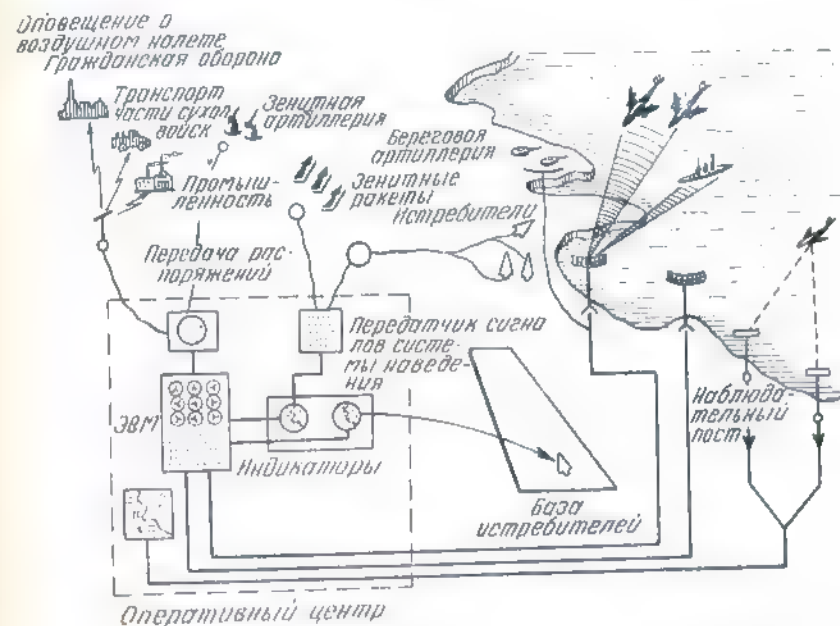 Оповещение о
воздушном налете,
Гражданская оборона
Транспорт
части сухоп.
войск
Зенитная
артиллерия
Береговая
артиллерия
Промыш-
ленность
Зенитные
ракеты
Истребители
Передача рас-
поряжений
Передатчик сигна
лов систе-
мы наведе-
ния
ЭВМ
Индикаторы
Наблюда-
тельный
пост
База
истребителей
Оперативный центр